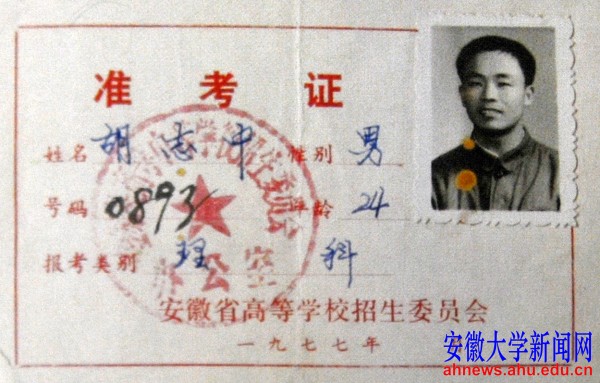 准考证
姓名 胡志中 性别 男
号码 0893 年龄 24
报考类别 理科
办公室
安徽省高等学校招生委员会
一九七七年
安徽大学新闻网
ahnews.ahu.edu.cn